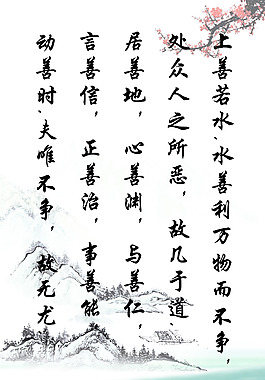 上善若水、水善利万物而不争，
处众人之所恶，故几于道、
居善地，心善渊，与善仁，
言善信，正善治，事善能
动善时、夫唯不争，故无尤